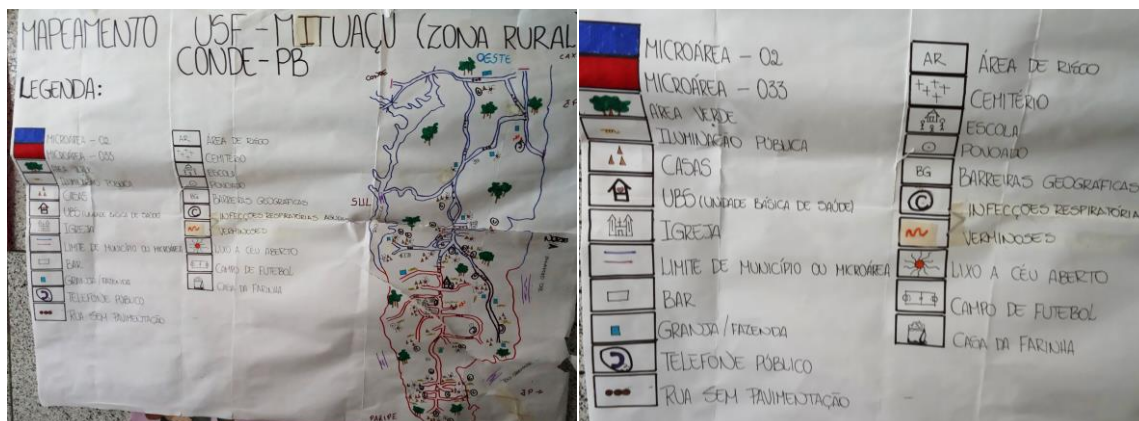 MAPEAMENTO USF - MITUAÇU (ZONA RURAL
CONDE-PB
LEGENDA:
MICROÁREA - 02
MICROÁREA - 033
ÁREA VERDE
ILUMINAÇÃO PÚBLICA
CASAS
UBS (UNIDADE BÁSICA DE SAÚDE)
IGREJA
LIMITE DE MUNICÍPIO OU MICROÁREA
BAR
GRANJA/FAZENDA
TELEFONE PÚBLICO
RUA SEM PAVIMENTAÇÃO
AR ÁREA DE RISCO
CEMITÉRIO
ESCOLA
POVOADO
BG BARREIRAS GEOGRÁFICAS
C INFECÇÕES RESPIRATÓRIAS AGUDAS
VERMINOSES
LIXO A CÉU ABERTO
CAMPO DE FUTEBOL
CASA DA FARINHA
OESTE
SUL
NORTE
MICROÁREA - 02
MICROÁREA - 033
ÁREA VERDE
ILUMINAÇÃO PÚBLICA
CASAS
UBS (UNIDADE BÁSICA DE SAÚDE)
IGREJA
LIMITE DE MUNICÍPIO OU MICROÁREA
BAR
GRANJA/FAZENDA
TELEFONE PÚBLICO
RUA SEM PAVIMENTAÇÃO
AR ÁREA DE RISCO
CEMITÉRIO
ESCOLA
POVOADO
BG BARREIRAS GEOGRÁFICAS
C INFECÇÕES RESPIRATÓRIA
VERMINOSES
LIXO A CÉU ABERTO
CAMPO DE FUTEBOL
CASA DA FARINHA